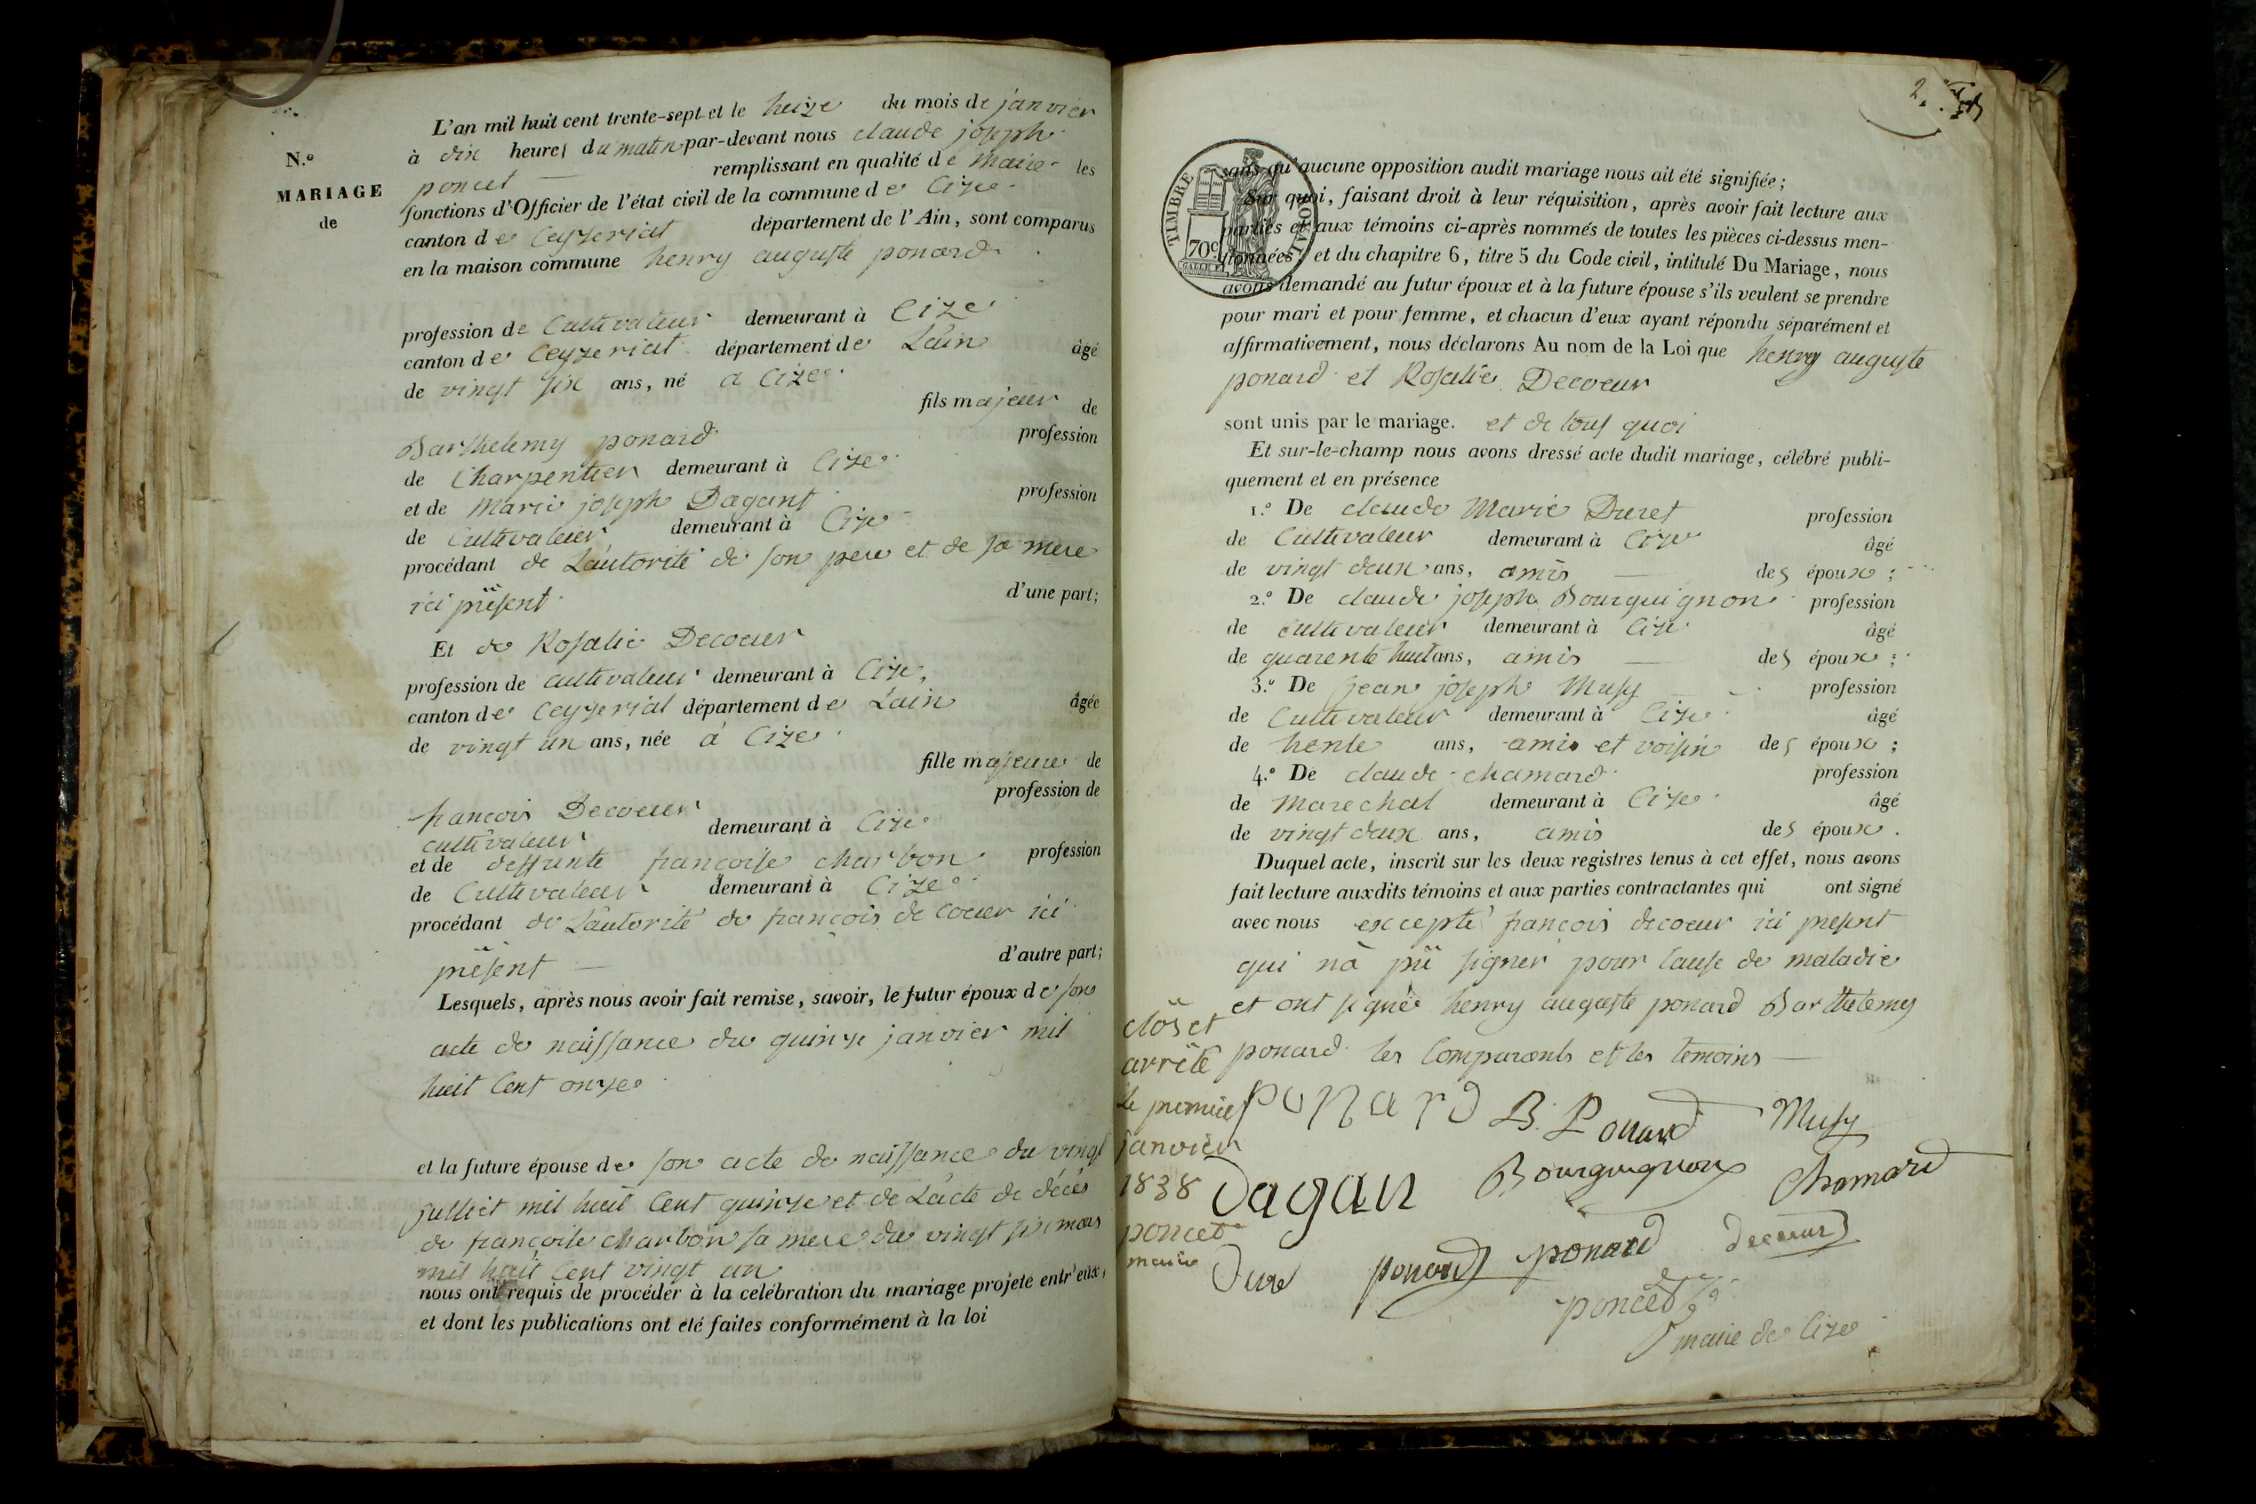 N.o
MARIAGE
de
L'an mil huit cent trente-sept et le treize du mois de janvier
à dix heures du matin par-devant nous claude joseph
poncet — remplissant en qualité de maire les
fonctions d'Officier de l'état civil de la commune de Cize
canton de Ceyzeriat département de l'Ain, sont comparus
en la maison commune henry auguste ponard
profession de Cultivateur demeurant à Cize
canton de Ceyzeriat département de Lain âgé
de vingt six ans, né a Cize
fils majeur de
Barthelemy ponard profession
de Charpentier demeurant à Cize
et de Marie joseph Dagant profession
de Cultivateur demeurant à Cize
procédant de Lautorité de son pere et de sa mere
ici présent d'une part;
Et de Rosalie Decoeur
profession de cultivateur demeurant à Cize,
canton de Ceyzeriat département de Lain âgée
de vingt un ans, née á Cize
fille majeure de
françois Decoeur profession de
cultivateur demeurant à Cize
et de deffunte françoise charbon profession
de Cultivateur demeurant à Cize
procédant de Lautorité de françois de coeur ici
présent — d'autre part;
Lesquels, après nous avoir fait remise, savoir, le futur époux de son
acte de naissance du quinze janvier mil
huit Cent onze
et la future épouse de son acte de naissance du vingt
juillet mil huit Cent quinze et de Lacte de décès
de françoise charbon sa mere du vingt six mars
mil huit Cent vingt un
nous ont requis de procéder à la celébration du mariage projeté entr'eux,
et dont les publications ont été faites conformément à la loi
2.
TIMBRE ROYAL
70c
sans qu'aucune opposition audit mariage nous ait été signifiée;
Sur quoi, faisant droit à leur réquisition, après avoir fait lecture aux
parties et aux témoins ci-après nommés de toutes les pièces ci-dessus men-
tionnées, et du chapitre 6, titre 5 du Code civil, intitulé Du Mariage, nous
avons demandé au futur époux et à la future épouse s'ils veulent se prendre
pour mari et pour femme, et chacun d'eux ayant répondu séparément et
affirmativement, nous déclarons Au nom de la Loi que henry auguste
ponard et Rosalie Decoeur
sont unis par le mariage. et de tous quoi
Et sur-le-champ nous avons dressé acte dudit mariage, célébré publi-
quement et en présence
1.o De claude Marie Duret profession
de Cultivateur demeurant à Cize âgé
de vingt deux ans, amis — des époux;
2.o De claude joseph Bourguignon profession
de cultivateur demeurant à Cize âgé
de quarente huit ans, amis — des époux;
3.o De jean joseph Musy profession
de Cultivateur demeurant à Cize âgé
de trente ans, amis et voisin des époux;
4.o De claude chamard profession
de Marechal demeurant à Cize âgé
de vingt deux ans, amis des époux.
Duquel acte, inscrit sur les deux registres tenus à cet effet, nous avons
fait lecture auxdits témoins et aux parties contractantes qui ont signé
avec nous excepté françois decoeur ici présent
qui nà pû signer pour cause de maladie
et ont signé henry auguste ponard Barthelemy
ponard les Comparants et les temoins —
clos et
arrêté
le premier
janvier
1838
poncet
maire
ponard B. Ponard Musy
Dagan Bourguignon Chamard
Dure ponard ponard decoeur
poncet
maire de Cize